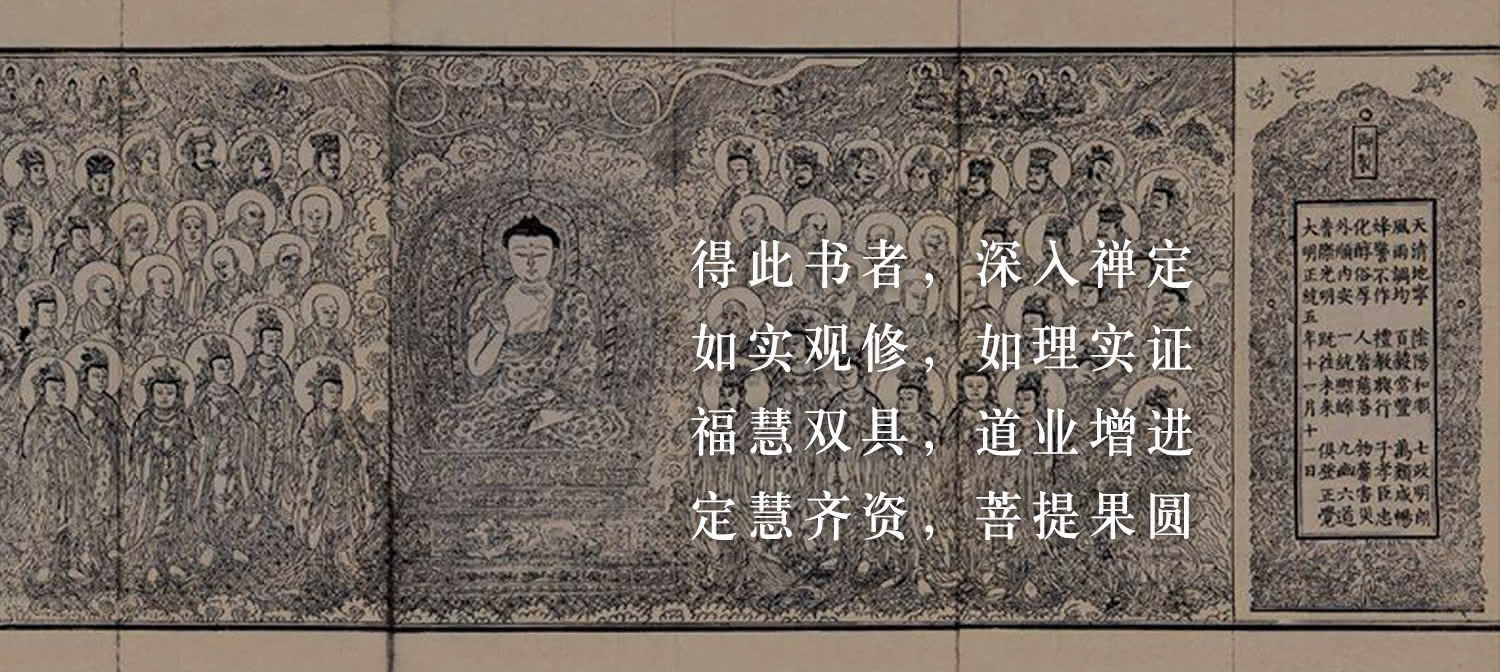 得此书者，深入禅定
如实观修，如理实证
福慧双具，道业增进
定慧齐资，菩提果圆
御製
天清地寧 陰陽和順 七政明朗
風雨調均 百穀常豐 萬類咸暢
烽警不作 禮教興行 子孝臣忠
化醇俗厚 人皆慈善 物靡害災
外順內安 一統熙皞 九幽六道
普際光明 旣往未來 俱登正覺
大明正統五年十一月十一日